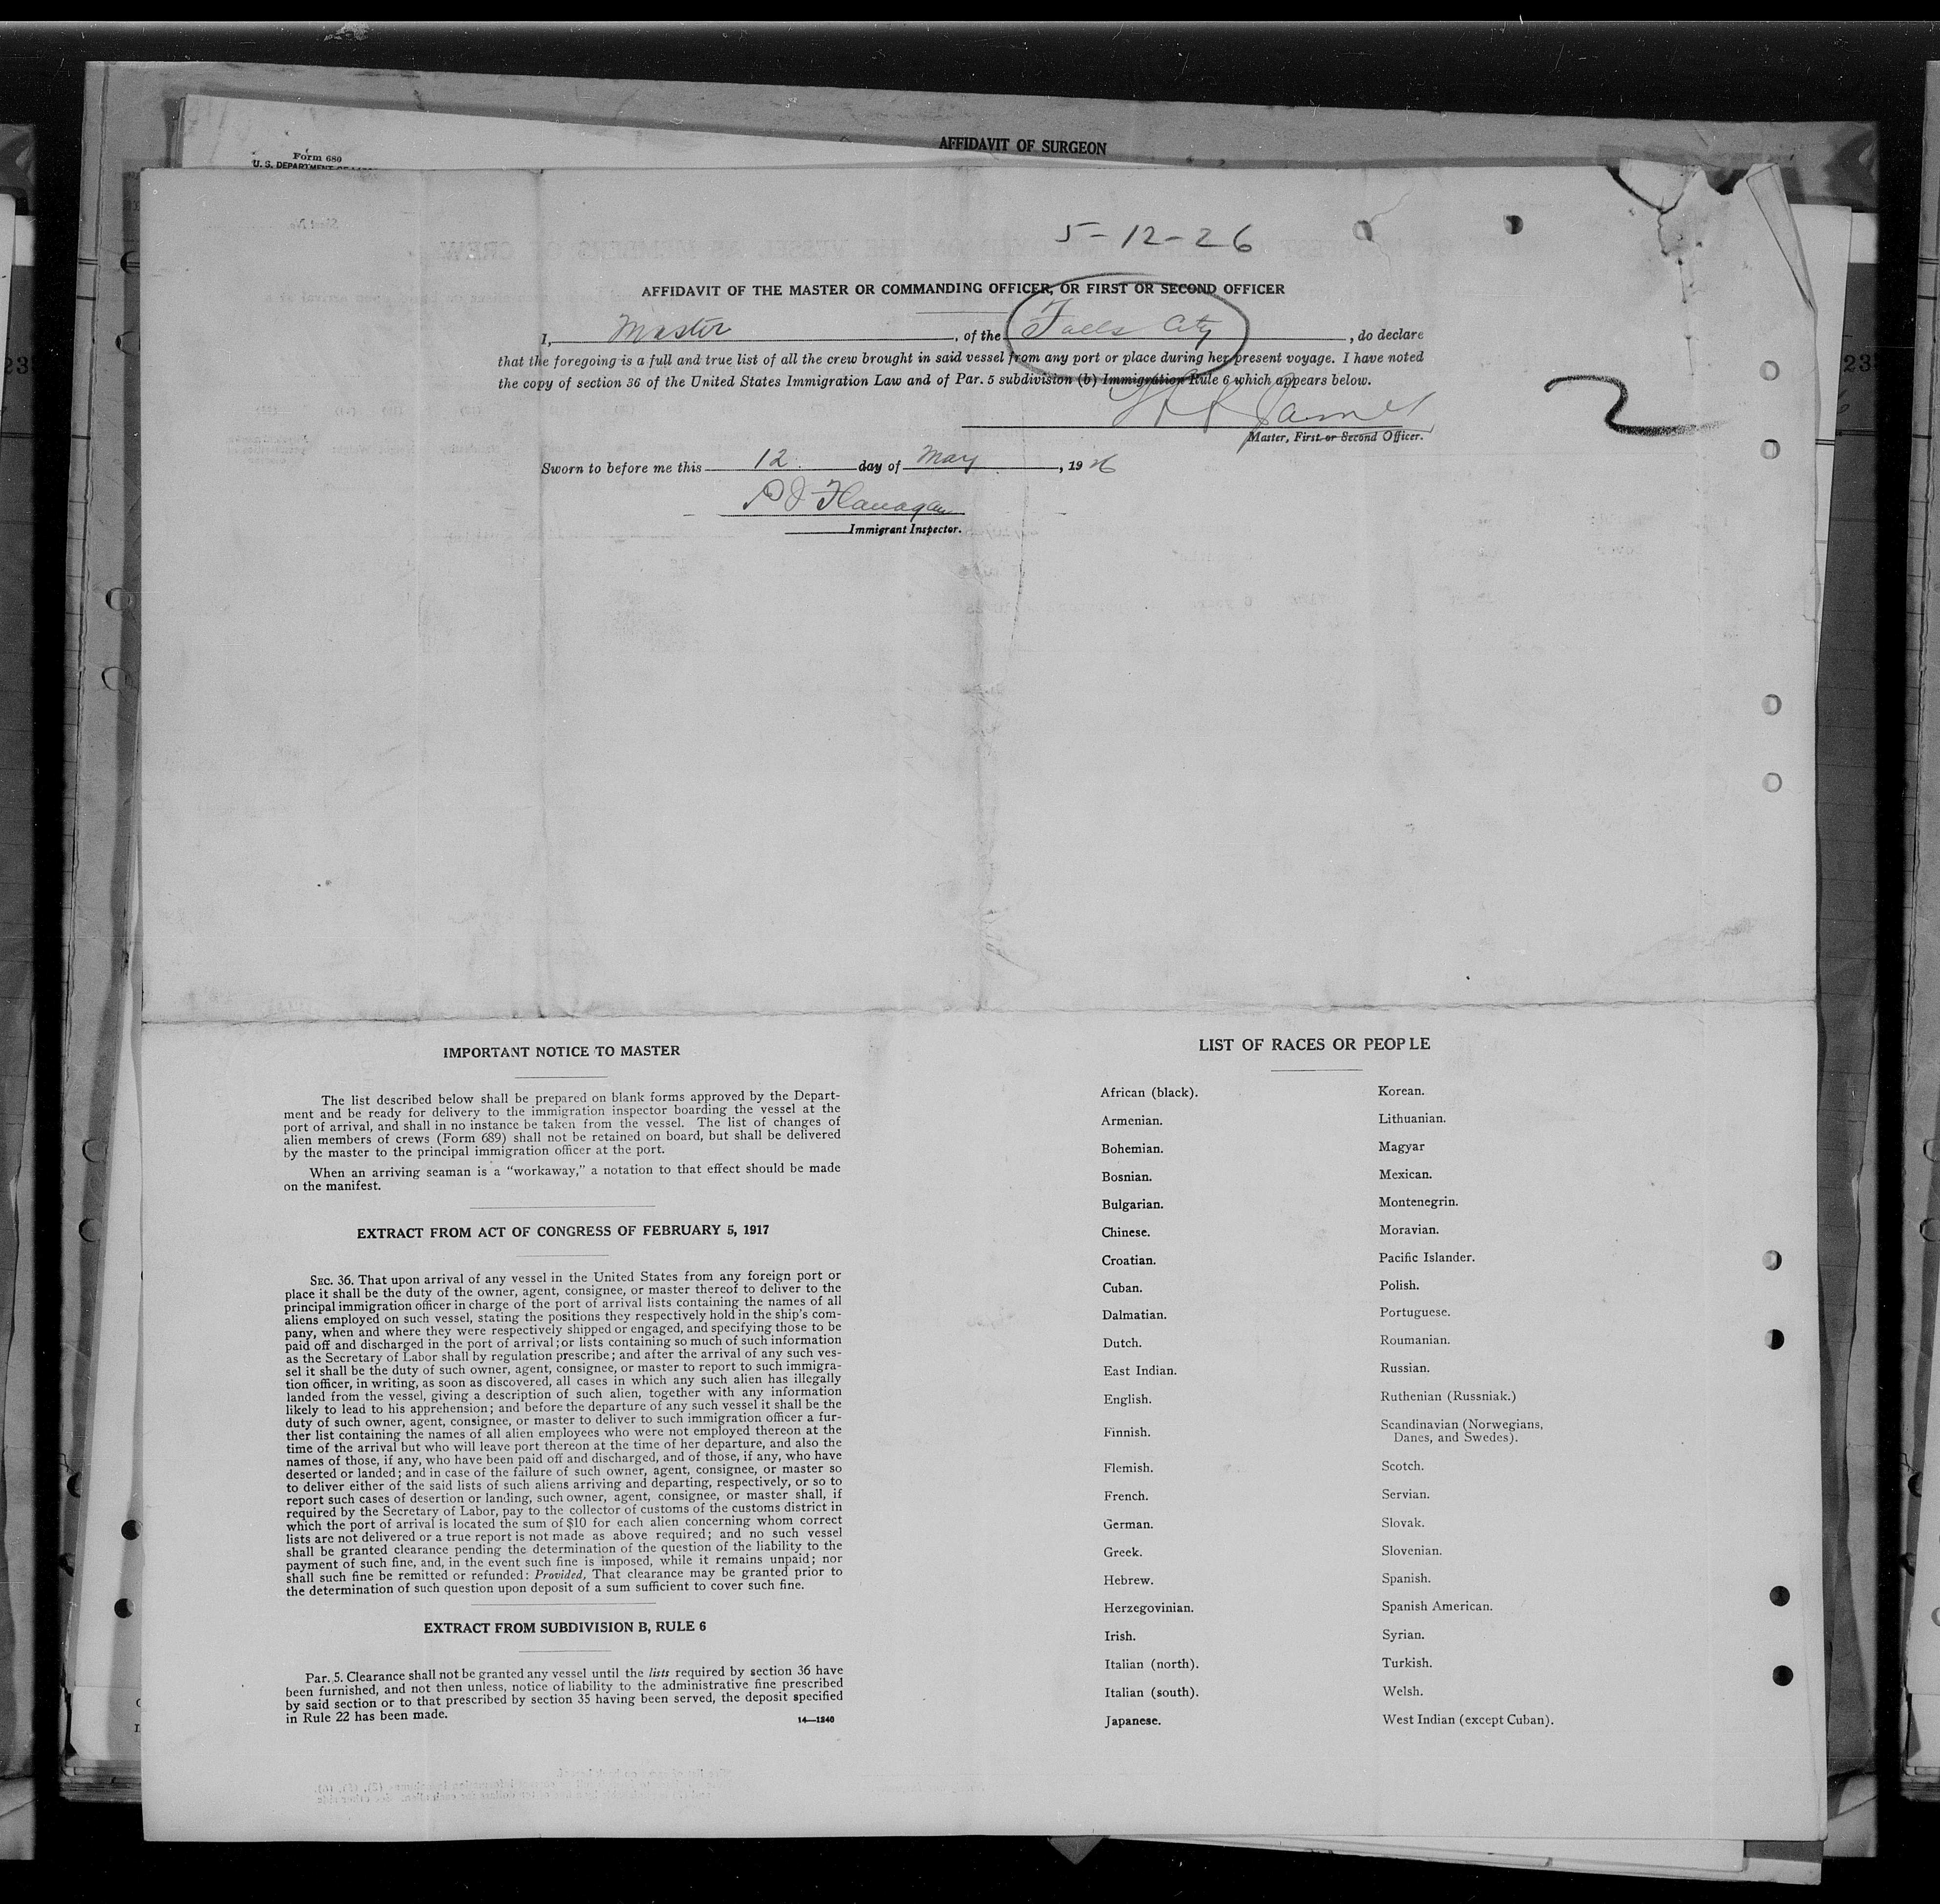 AFFIDAVIT OF SURGEON
Form 680
U. S. DEPARTMENT OF LABOR
5-12-26
AFFIDAVIT OF THE MASTER OR COMMANDING OFFICER, OR FIRST OR SECOND OFFICER
I, Master, of the Falls City, do declare
that the foregoing is a full and true list of all the crew brought in said vessel from any port or place during her present voyage. I have noted
the copy of section 36 of the United States Immigration Law and of Par. 5 subdivision (b) Immigration Rule 6 which appears below.
James
2
Master, First or Second Officer.
Sworn to before me this 12 day of May, 1926
Flanagan
Immigrant Inspector.
IMPORTANT NOTICE TO MASTER
The list described below shall be prepared on blank forms approved by the Depart-
ment and be ready for delivery to the immigration inspector boarding the vessel at the
port of arrival, and shall in no instance be taken from the vessel. The list of changes of
alien members of crews (Form 689) shall not be retained on board, but shall be delivered
by the master to the principal immigration officer at the port.
When an arriving seaman is a "workaway," a notation to that effect should be made
on the manifest.
EXTRACT FROM ACT OF CONGRESS OF FEBRUARY 5, 1917
SEC. 36. That upon arrival of any vessel in the United States from any foreign port or
place it shall be the duty of the owner, agent, consignee, or master thereof to deliver to the
principal immigration officer in charge of the port of arrival lists containing the names of all
aliens employed on such vessel, stating the positions they respectively hold in the ship's com-
pany, when and where they were respectively shipped or engaged, and specifying those to be
paid off and discharged in the port of arrival; or lists containing so much of such information
as the Secretary of Labor shall by regulation prescribe; and after the arrival of any such ves-
sel it shall be the duty of such owner, agent, consignee, or master to report to such immigra-
tion officer, in writing, as soon as discovered, all cases in which any such alien has illegally
landed from the vessel, giving a description of such alien, together with any information
likely to lead to his apprehension; and before the departure of any such vessel it shall be the
duty of such owner, agent, consignee, or master to deliver to such immigration officer a fur-
ther list containing the names of all alien employees who were not employed thereon at the
time of the arrival but who will leave port thereon at the time of her departure, and also the
names of those, if any, who have been paid off and discharged, and of those, if any, who have
deserted or landed; and in case of the failure of such owner, agent, consignee, or master so
to deliver either of the said lists of such aliens arriving and departing, respectively, or so to
report such cases of desertion or landing, such owner, agent, consignee, or master shall, if
required by the Secretary of Labor, pay to the collector of customs of the customs district in
which the port of arrival is located the sum of $10 for each alien concerning whom correct
lists are not delivered or a true report is not made as above required; and no such vessel
shall be granted clearance pending the determination of the question of the liability to the
payment of such fine, and, in the event such fine is imposed, while it remains unpaid; nor
shall such fine be remitted or refunded: Provided, That clearance may be granted prior to
the determination of such question upon deposit of a sum sufficient to cover such fine.
EXTRACT FROM SUBDIVISION B, RULE 6
Par. 5. Clearance shall not be granted any vessel until the lists required by section 36 have
been furnished, and not then unless, notice of liability to the administrative fine prescribed
by said section or to that prescribed by section 35 having been served, the deposit specified
in Rule 22 has been made.
14—1240
LIST OF RACES OR PEOPLE
African (black).
Armenian.
Bohemian.
Bosnian.
Bulgarian.
Chinese.
Croatian.
Cuban.
Dalmatian.
Dutch.
East Indian.
English.
Finnish.
Flemish.
French.
German.
Greek.
Hebrew.
Herzegovinian.
Irish.
Italian (north).
Italian (south).
Japanese.
Korean.
Lithuanian.
Magyar
Mexican.
Montenegrin.
Moravian.
Pacific Islander.
Polish.
Portuguese.
Roumanian.
Russian.
Ruthenian (Russniak.)
Scandinavian (Norwegians,
Danes, and Swedes).
Scotch.
Servian.
Slovak.
Slovenian.
Spanish.
Spanish American.
Syrian.
Turkish.
Welsh.
West Indian (except Cuban).